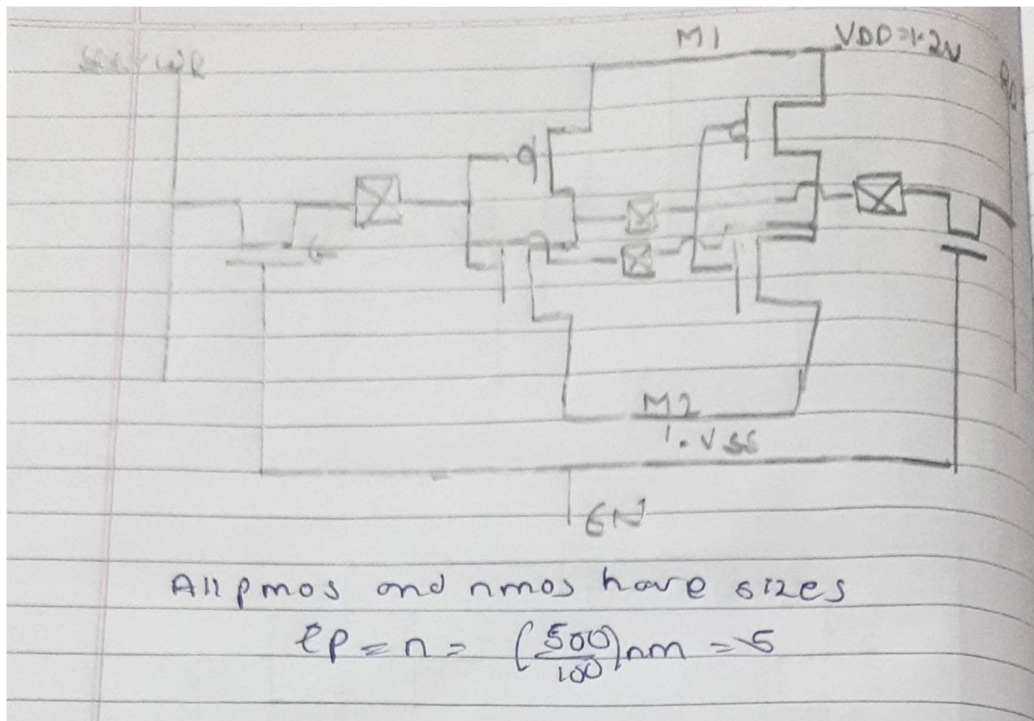 M1
VDD=1.2V
M2
1. VSS
EN
All pmos and nmos have sizes
= n = (500/100)nm = 5